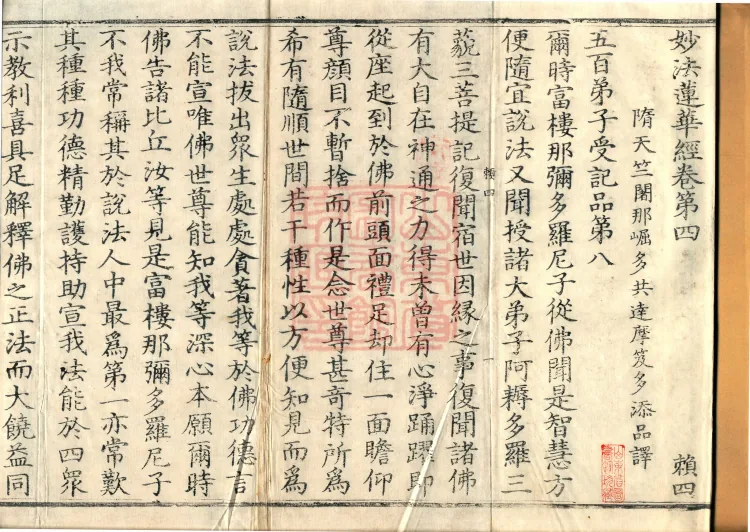 妙法蓮華經卷第四 賴四
隋天竺闍那崛多共達摩笈多添品譯
五百弟子受記品第八
爾時富樓那彌多羅尼子從佛聞是智慧方
便隨宜說法又聞授諸大弟子阿耨多羅三
藐三菩提記復聞宿世因緣之事復聞諸佛
賴四 一
有大自在神通之力得未曾有心淨踊躍即
從座起到於佛前頭面禮足却住一面瞻仰
尊顔目不暫捨而作是念世尊甚奇特所爲
希有隨順世間若干種性以方便知見而爲
說法拔出衆生處處貪著我等於佛功德言
不能宣唯佛世尊能知我等深心本願爾時
佛告諸比丘汝等見是富樓那彌多羅尼子
不我常稱其於說法人中最爲第一亦常歎
其種種功德精勤護持助宣我法能於四衆
示教利喜具足解釋佛之正法而大饒益同